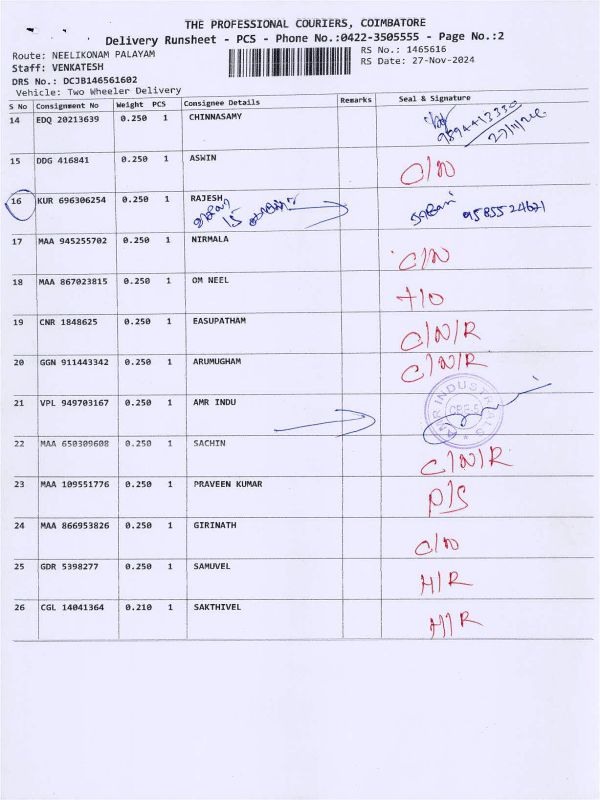 THE PROFESSIONAL COURIERS, COIMBATORE
Delivery Runsheet - PCS - Phone No.:0422-3505555 - Page No.:2
Route: NEELIKONAM PALAYAM
RS No.: 1465616
Staff: VENKATESH
RS Date: 27-Nov-2024
DRS No.: DCJB146561602
Vehicle: Two Wheeler Delivery
S No Consignment No Weight PCS Consignee Details Remarks Seal & Signature
14 EDQ 20213639 0.250 1 CHINNASAMY 9894413330
27/11/24
15 DDG 416841 0.250 1 ASWIN C/N
16 KUR 696306254 0.250 1 RAJESH 9585524621
15
17 MAA 945255702 0.250 1 NIRMALA C/N
18 MAA 867023815 0.250 1 OM NEEL
19 CNR 1848625 0.250 1 EASUPATHAM C/N/R
20 GGN 911443342 0.250 1 ARUMUGHAM C/N/R
21 VPL 949703167 0.250 1 AMR INDU AMR INDUSTRIALS
22 MAA 650309608 0.250 1 SACHIN C/N/R
23 MAA 109551776 0.250 1 PRAVEEN KUMAR P/S
24 MAA 866953826 0.250 1 GIRINATH C/N
25 GDR 5398277 0.250 1 SAMUVEL H/R
26 CGL 14041364 0.210 1 SAKTHIVEL H/R